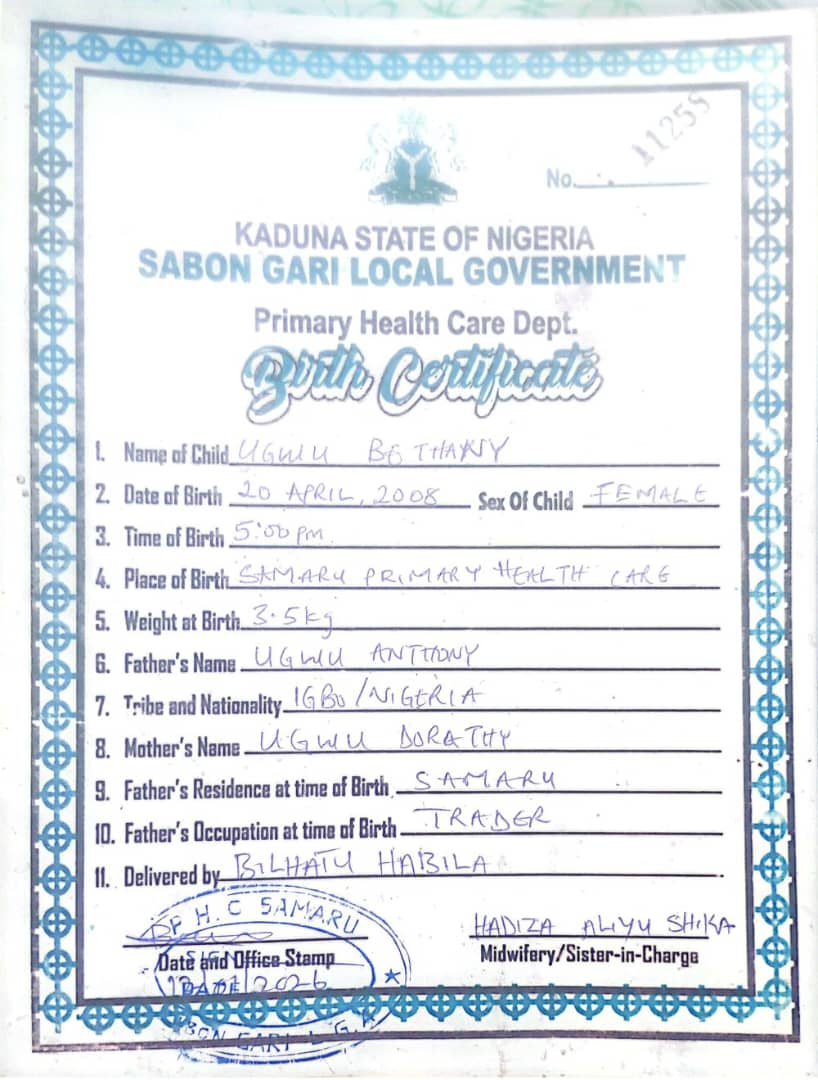 No. 11258
KADUNA STATE OF NIGERIA
SABON GARI LOCAL GOVERNMENT
Primary Health Care Dept.
Birth Certificate
1. Name of Child UGWU BETHANY
2. Date of Birth 20 APRIL, 2008 Sex Of Child FEMALE
3. Time of Birth 5:00 pm
4. Place of Birth SAMARU PRIMARY HEALTH CARE
5. Weight at Birth 3.5kg
6. Father's Name UGWU ANTHONY
7. Tribe and Nationality IGBO/NIGERIA
8. Mother's Name UGWU DORATHY
9. Father's Residence at time of Birth SAMARU
10. Father's Occupation at time of Birth TRADER
11. Delivered by BILHATU HABILA
P. H. C SAMARU
HADIZA ALIYU SHIKA
Date and Office Stamp
Midwifery/Sister-in-Charge
2026
GARI L.G.A